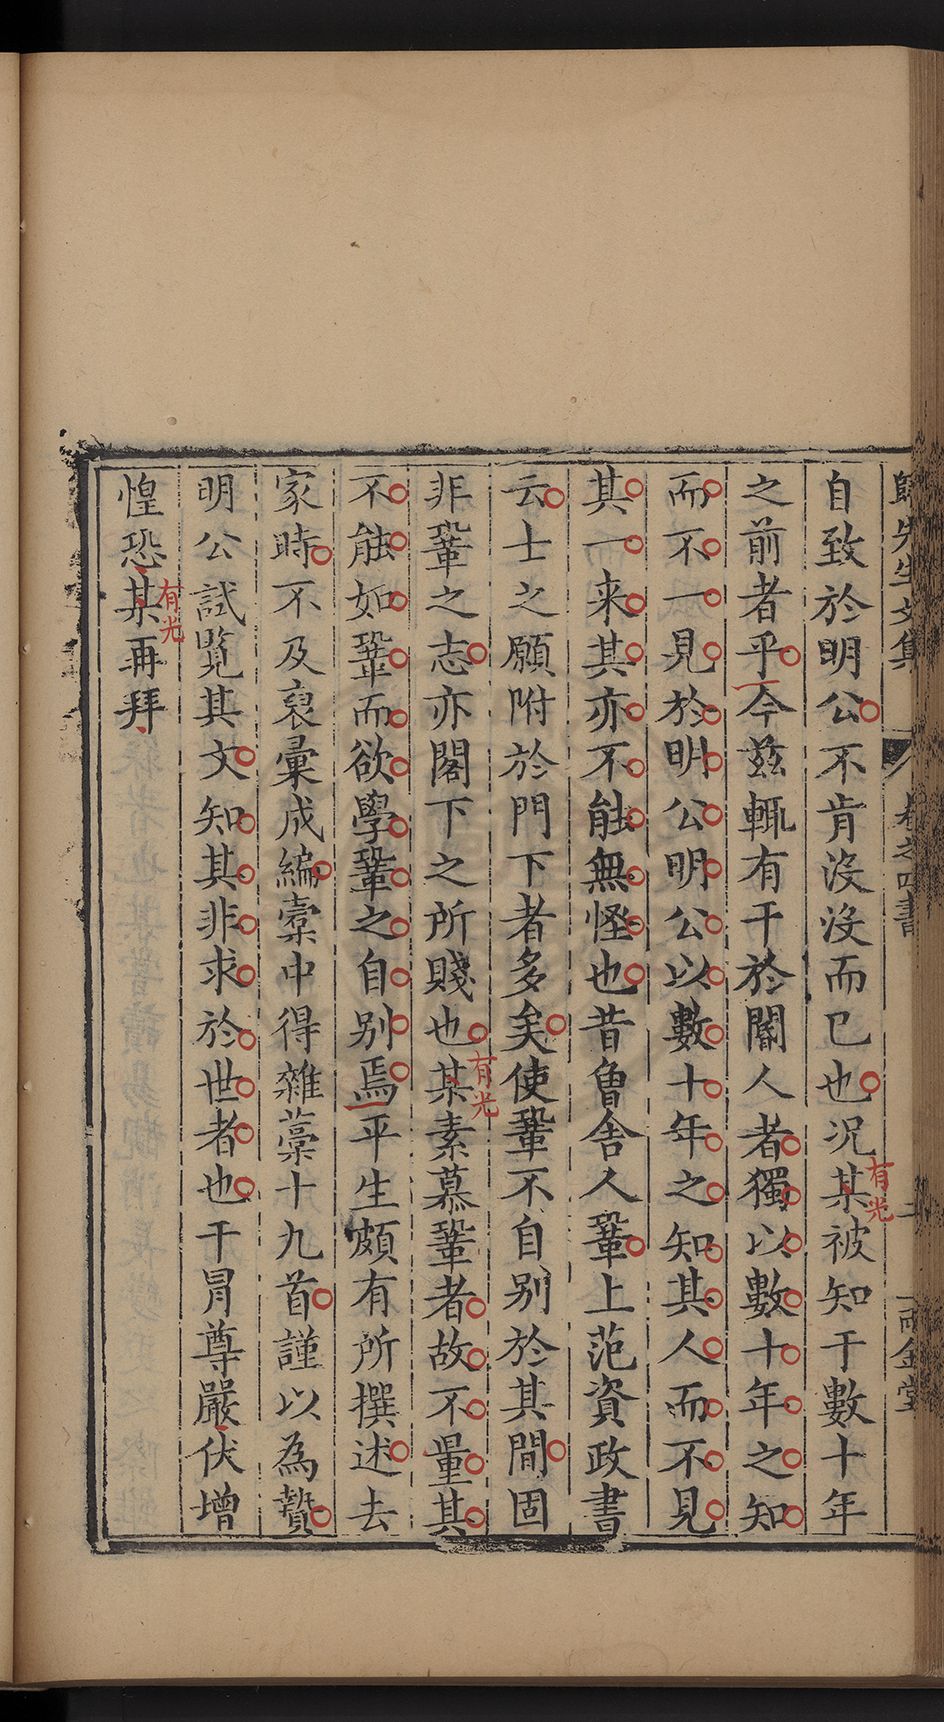 歸先生文集 卷之四書 二 雨金堂
自致於明公不肯沒沒而已也况某被知于數十年
有光
之前者乎今茲輒有干於閽人者獨以數十年之知
而不一見於明公明公以數十年之知其人而不見
其一来其亦不能無怪也昔曾舍人鞏上范資政書
云士之願附於門下者多矣使鞏不自別於其間固
非鞏之志亦閣下之所賤也某素慕鞏者故不量其
有光
不能如鞏而欲學鞏之自別焉平生頗有所撰述去
家時不及裒彙成編槖中得雜藁十九首謹以為贄
明公試覽其文知其非求於世者也干冒尊嚴伏增
惶恐某再拜
有光